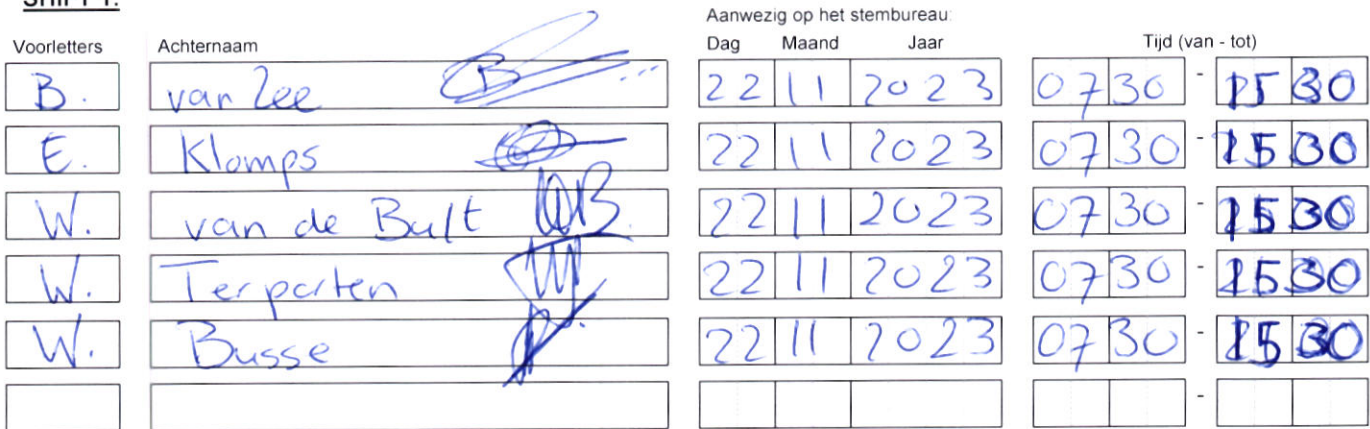 SHIFT 1:
Aanwezig op het stembureau:
Voorletters Achternaam Dag Maand Jaar Tijd (van - tot)
B. van Zee 22 11 2023 07 30 - 15 30
E. Klomps 22 11 2023 07 30 - 15 30
W. van de Bult 22 11 2023 07 30 - 15 30
W. Terporten 22 11 2023 07 30 - 15 30
W. Busse 22 11 2023 07 30 - 15 30
-